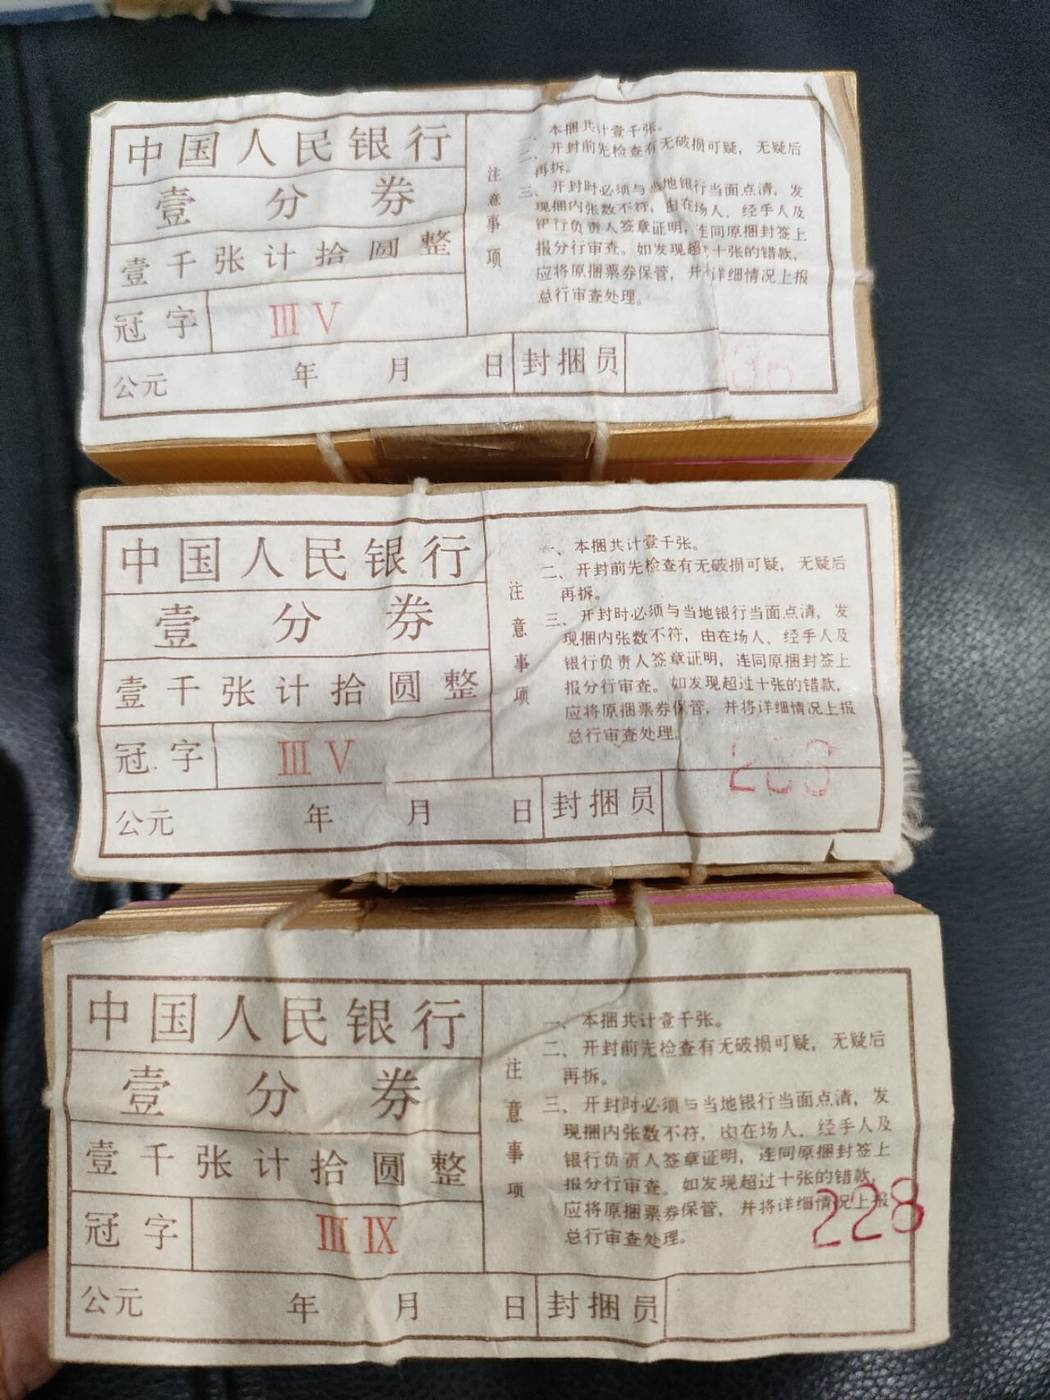 中国人民银行
壹分券
壹千张计拾圆整
冠字 III V
公元 年 月 日 封捆员
注意事项
一、本捆共计壹千张。
二、开封前先检查有无破损可疑，无疑后
再拆。
三、开封时必须与当地银行当面点清，发
现捆内张数不符，由在场人、经手人及
银行负责人签章证明，连同原捆封签上
报分行审查。如发现超过十张的错款，
应将原捆票券保管，并将详细情况上报
总行审查处理。
中国人民银行
壹分券
壹千张计拾圆整
冠字 III V
公元 年 月 日 封捆员
注意事项
一、本捆共计壹千张。
二、开封前先检查有无破损可疑，无疑后
再拆。
三、开封时必须与当地银行当面点清，发
现捆内张数不符，由在场人、经手人及
银行负责人签章证明，连同原捆封签上
报分行审查。如发现超过十张的错款，
应将原捆票券保管，并将详细情况上报
总行审查处理。
中国人民银行
壹分券
壹千张计拾圆整
冠字 III IX
公元 年 月 日 封捆员
注意事项
一、本捆共计壹千张。
二、开封前先检查有无破损可疑，无疑后
再拆。
三、开封时必须与当地银行当面点清，发
现捆内张数不符，由在场人、经手人及
银行负责人签章证明，连同原捆封签上
报分行审查。如发现超过十张的错款，
应将原捆票券保管，并将详细情况上报
总行审查处理。
228